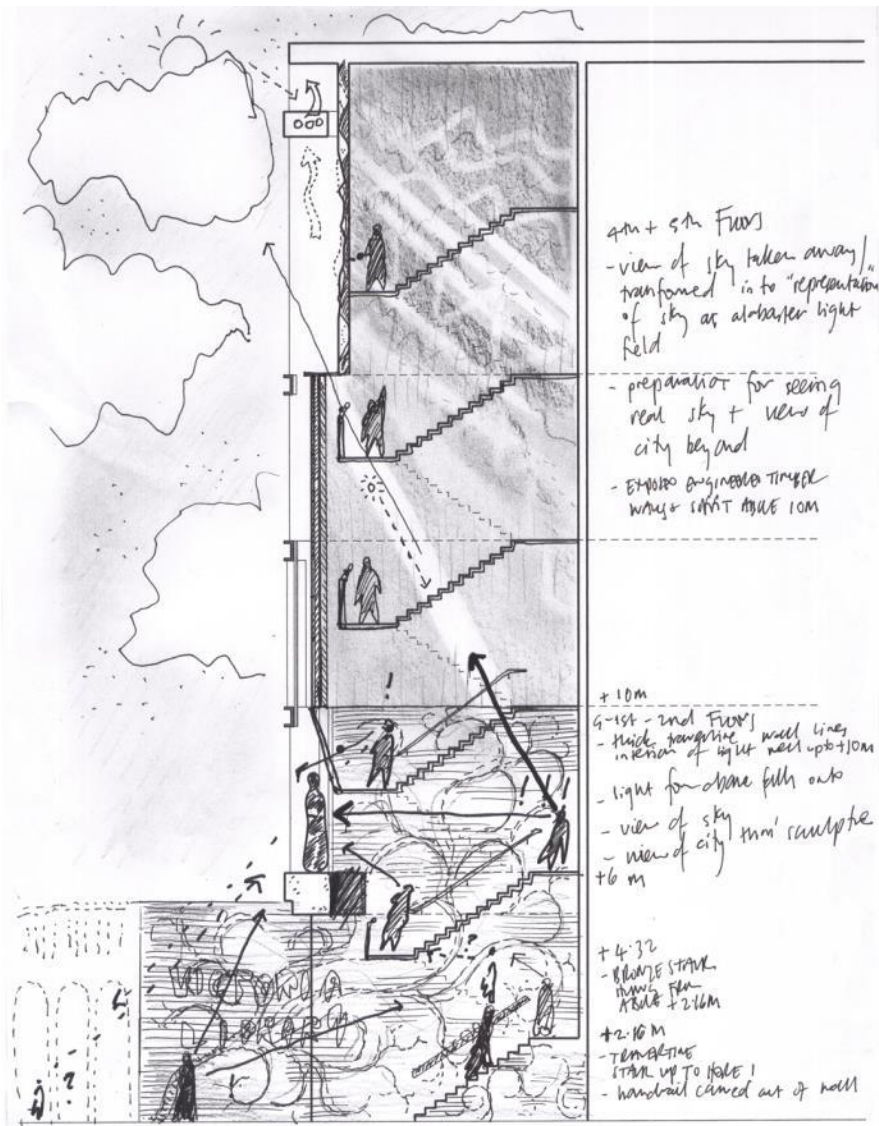 4th + 5th Floors
- view of sky taken away/
transformed in to "representation"
of sky as alabaster light
field
- preparation for seeing
real sky + view of
city beyond
- EXPOSED ENGINEERED TIMBER
WALL + SOFFIT ABOVE 10M
+ 10m
G-1st-2nd Floors
- thick travertine wall lines
interior of light well up to +10m
- light from above falls onto
- view of sky
- view of city thro' sculpture
+6 m
+ 4.32
- BRONZE STAIR
HUNG FROM
ABOVE +2.16M
+2.16 M
- TRAVERTINE
STAIR UP TO HERE !
- handrail carved out of wall
!
! !
?
!